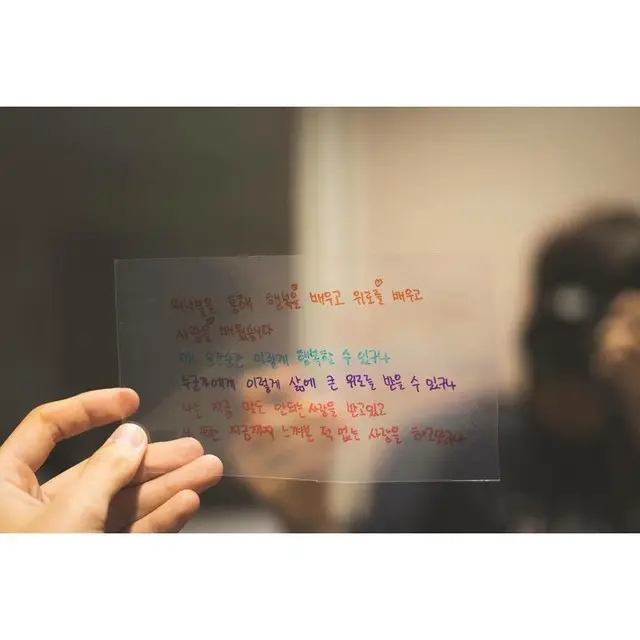 통해 행복을 배우고 위로를 배우고
사랑을 배웠습니다
이렇게 행복할 수 있구나
누군가에게 이렇게 삶에 큰 위로를 받을 수 있구나
나는 지금 말도 안되는 사랑을 받고있고
나 또한 지금까지 느껴본 적 없는 사랑을 하고있구나